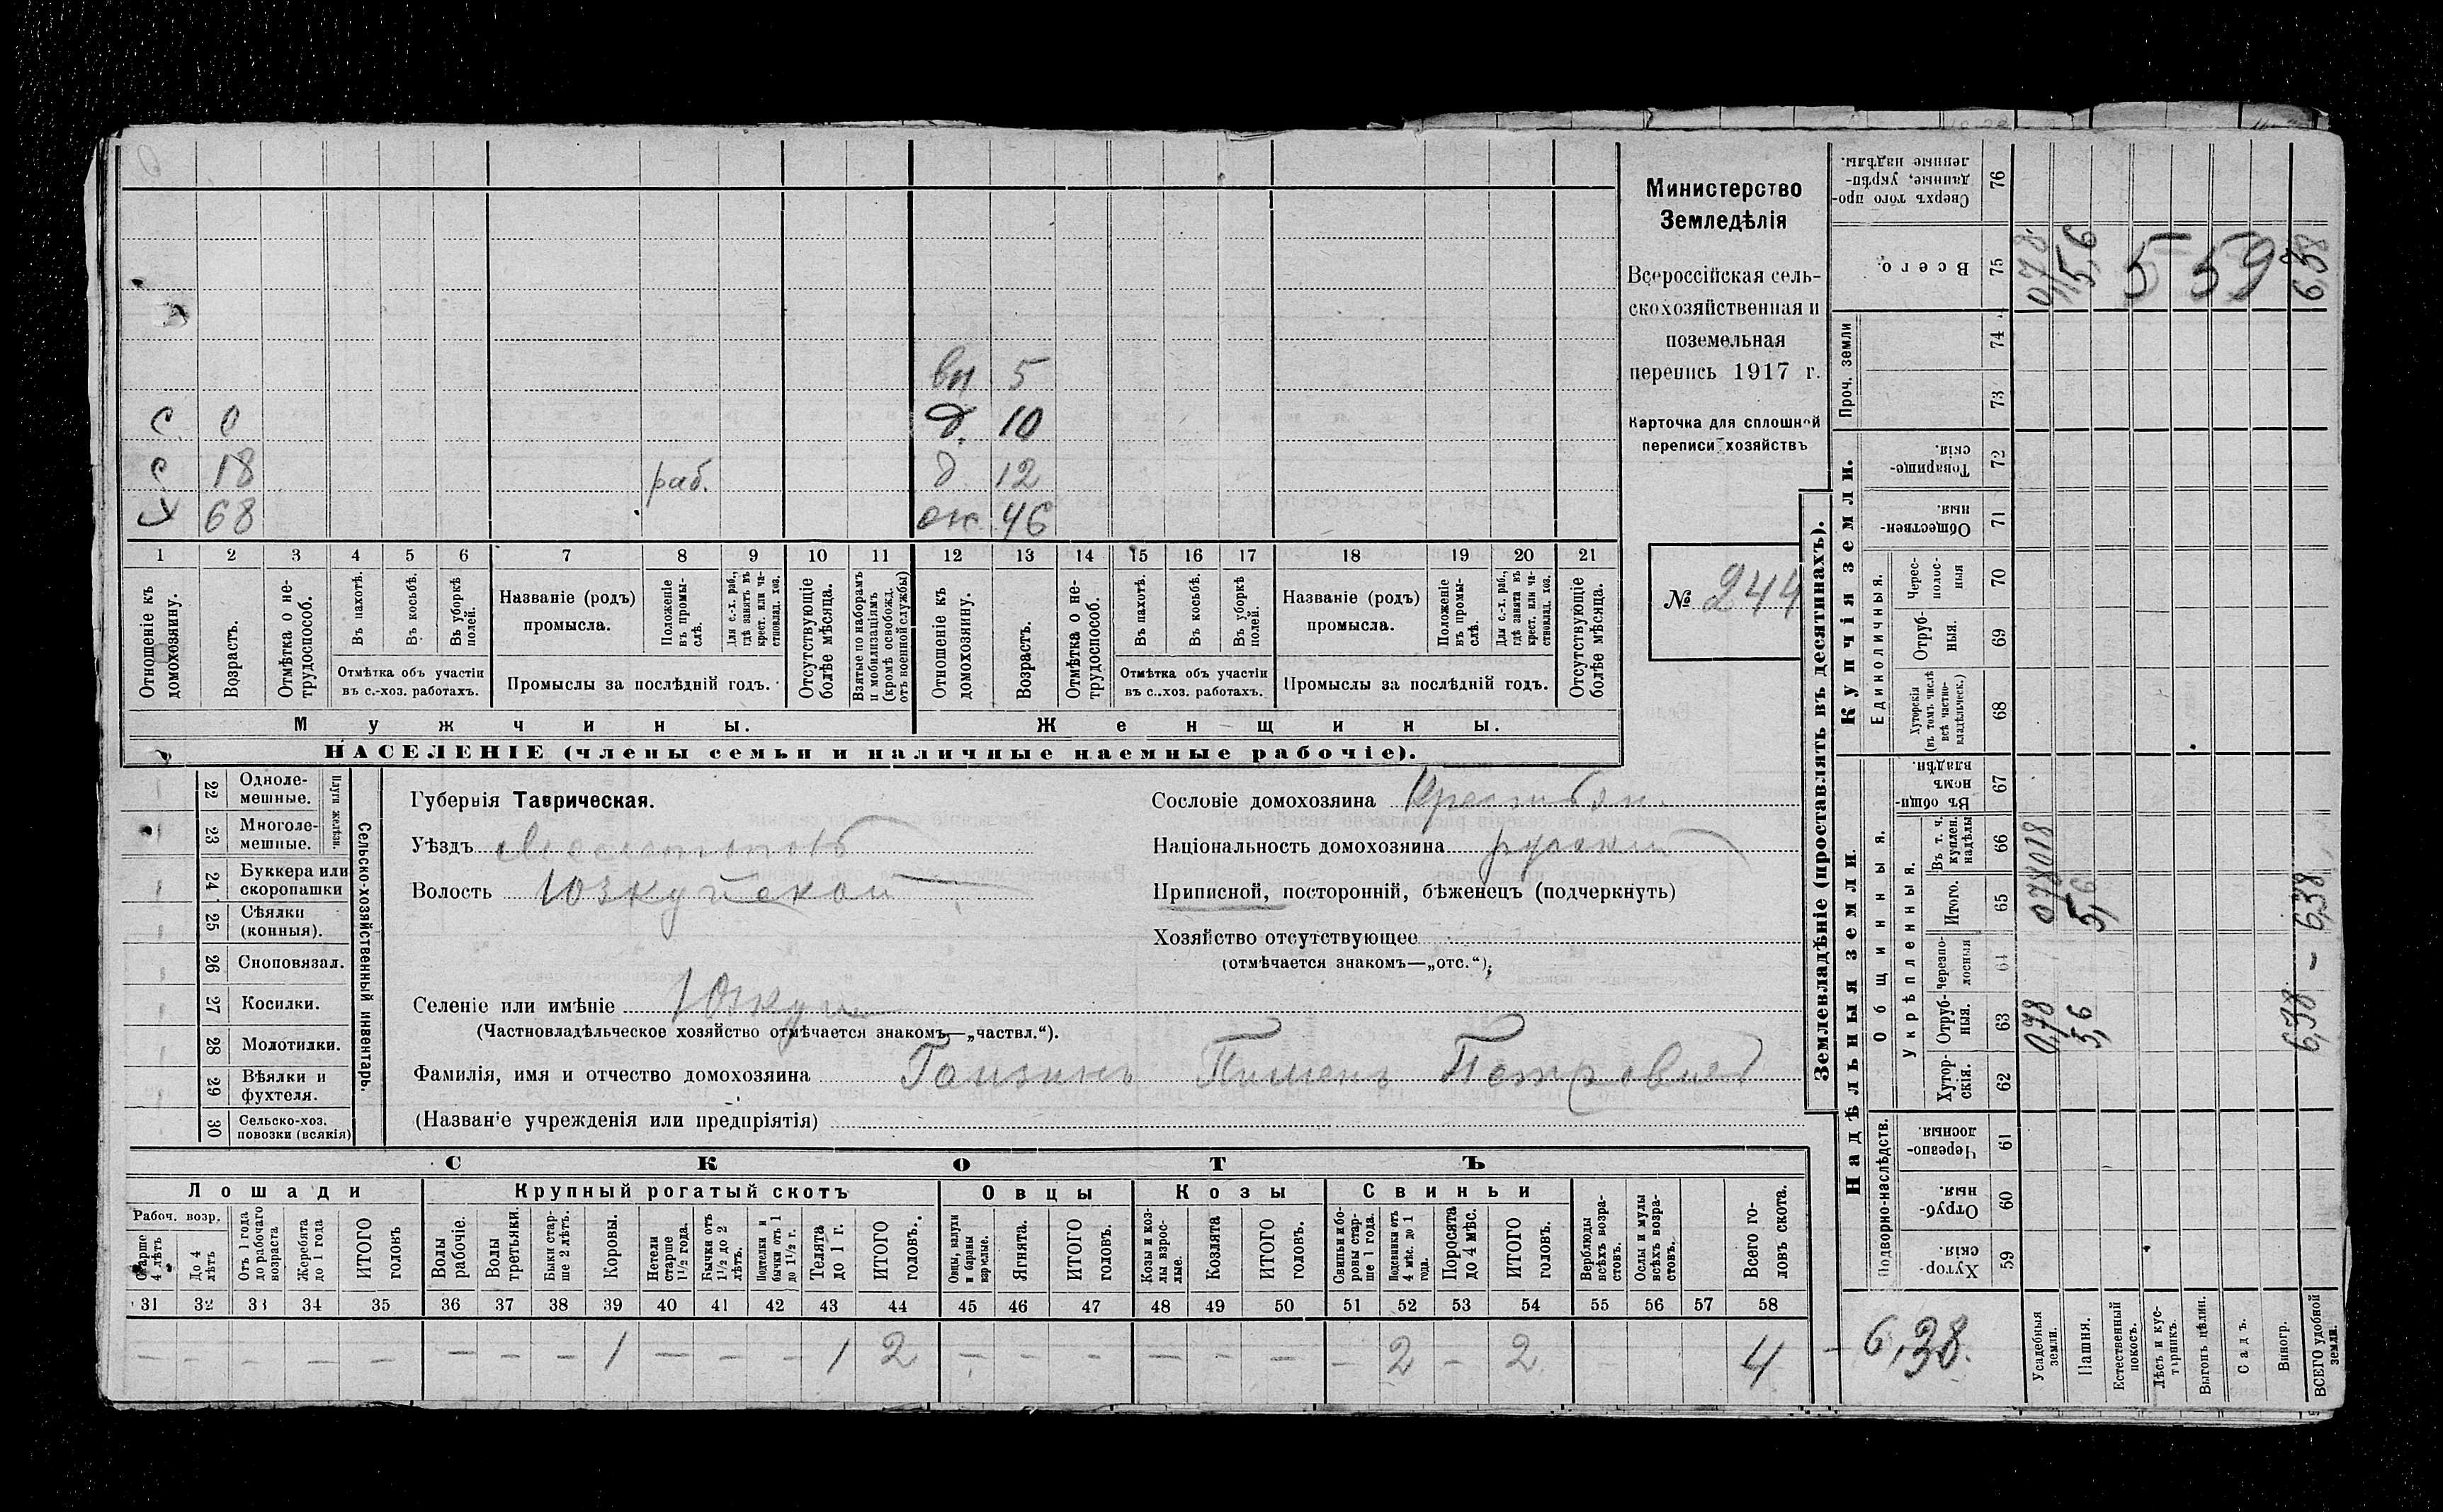 вн 5
С. 0 д. 10
С 18 раб. д 12
Х 68 ж 46
1 2 3 4 5 6 7 8 9 10 11 12 13 14 15 16 17 18 19 20 21
Отношеніе къ домохозяину.
Возрастъ.
Отмѣтка о нетрудоспособ.
Въ пахотѣ.
Въ косьбѣ.
Въ уборкѣ полей.
Отмѣтка объ участіи
въ с.-хоз. работахъ.
Названіе (родъ)
промысла.
Положеніе въ промыслѣ.
Для с.-х. раб., гдѣ занятъ въ крест. или частновлад. хоз.
Промыслы за послѣдній годъ.
Отсутствующіе болѣе мѣсяца.
Взятые по наборамъ и мобилизаціямъ (кромѣ освобожд. отъ военной службы)
Отношеніе къ домохозяину.
Возрастъ.
Отмѣтка о нетрудоспособ.
Въ пахотѣ.
Въ косьбѣ.
Въ уборкѣ полей.
Отмѣтка объ участіи
въ с..хоз. работахъ.
Названіе (родъ)
промысла.
Положеніе въ промыслѣ.
Для с.-х. раб., гдѣ занята въ крест. или частновлад. хоз.
Промыслы за послѣдній годъ.
Отсутствующіе болѣе мѣсяца.
Мужчины.
Женщины.
НАСЕЛЕНІЕ (члены семьи и наличные наемные рабочіе).
Министерство
Земледѣлія
Всероссійская сель-
скохозяйственная и
поземельная
перепись 1917 г.
Карточка для сплошной
переписи хозяйствъ
№ 244
Сельско-хозяйственный инвентарь.
Плуги желѣзн.
22 Одноле-
мешные.
23 Многоле-
мешные.
24 Буккера или
скоропашки
25 Сѣялки
(конныя).
26 Сноповязал.
27 Косилки.
28 Молотилки.
29 Вѣялки и
фухтеля.
30 Сельско-хоз.
повозки (всякія)
Губернія Таврическая.
Уѣздъ Мелитопол
Волость Юзкуйской
Селеніе или имѣніе Юзкуи
(Частновладѣльческое хозяйство отмѣчается знакомъ—„частвл.“).
Фамилія, имя и отчество домохозяина Ганзинъ Пименъ Петровичъ
(Названіе учрежденія или предпріятія)
Сословіе домохозяина Крестьян.
Національность домохозяина русский
Приписной, посторонній, бѣженецъ (подчеркнуть)
Хозяйство отсутствующее
(отмѣчается знакомъ—„отс.“).
СКОТЪ
Лошади Крупный рогатый скотъ Овцы Козы Свиньи
Рабоч. возр.
Старше 4 лѣтъ
До 4 лѣтъ
Отъ 1 года до рабочаго возраста
Жеребята до 1 года
ИТОГО головъ
Волы рабочіе.
Волы третьяки.
Быки старше 2 лѣтъ.
Коровы.
Нетели старше 1 1/2 года.
Бычки отъ 1 1/2 до 2 лѣтъ.
Подтелки и бычки отъ 1 до 1 1/2 г.
Телята до 1 г.
ИТОГО головъ.
Овцы, валухи и бараны взрослые.
Ягнята.
ИТОГО головъ.
Козы и козлы взрослые.
Козлята
ИТОГО головъ.
Свиньи и боровы старше 1 года.
Подсвинки отъ 4 мѣс. до 1 года.
Поросята до 4 мѣс.
ИТОГО головъ.
Верблюды всѣхъ возрастовъ.
Ослы и мулы всѣхъ возрастовъ.
Всего головъ скота.
31 32 33 34 35 36 37 38 39 40 41 42 43 44 45 46 47 48 49 50 51 52 53 54 55 56 57 58
— — — — — — — — 1 — — — 1 2 — — — — — — — 2 — 2 4
Землевладѣніе (проставлять въ десятинахъ).
Надѣльныя земли.
Купчія земли.
Проч. земли
Подворно-наслѣдств.
Общинныя.
Укрѣпленныя.
Единоличныя.
59 Хуторскія.
60 Отрубныя.
61 Черезполосныя.
62 Хуторскія.
63 Отрубныя.
64 Черезполосныя
65 Итого.
66 Въ т. ч. куплен. надѣлы
67 Въ общинномъ владѣн.
68 Хуторскія (въ томъ числѣ всѣ частновладѣльческ.)
69 Отрубныя.
70 Черес-полосныя
71 Общественныя.
72 Товарищескія.
73
74
75 Всего.
76 Сверхъ того проданные, укрѣпленные надѣлы.
Усадебныя земли. 0,78 078 018 0,78
Пашня. 5,6 5,6 5,6
Естественный покосъ.
Лѣсъ и кустарникъ.
Выгонъ цѣлин.
Садъ.
Виногр.
ВСЕГО удобной земли. 6,38 – 6,38 6,38
5 59
6,38.